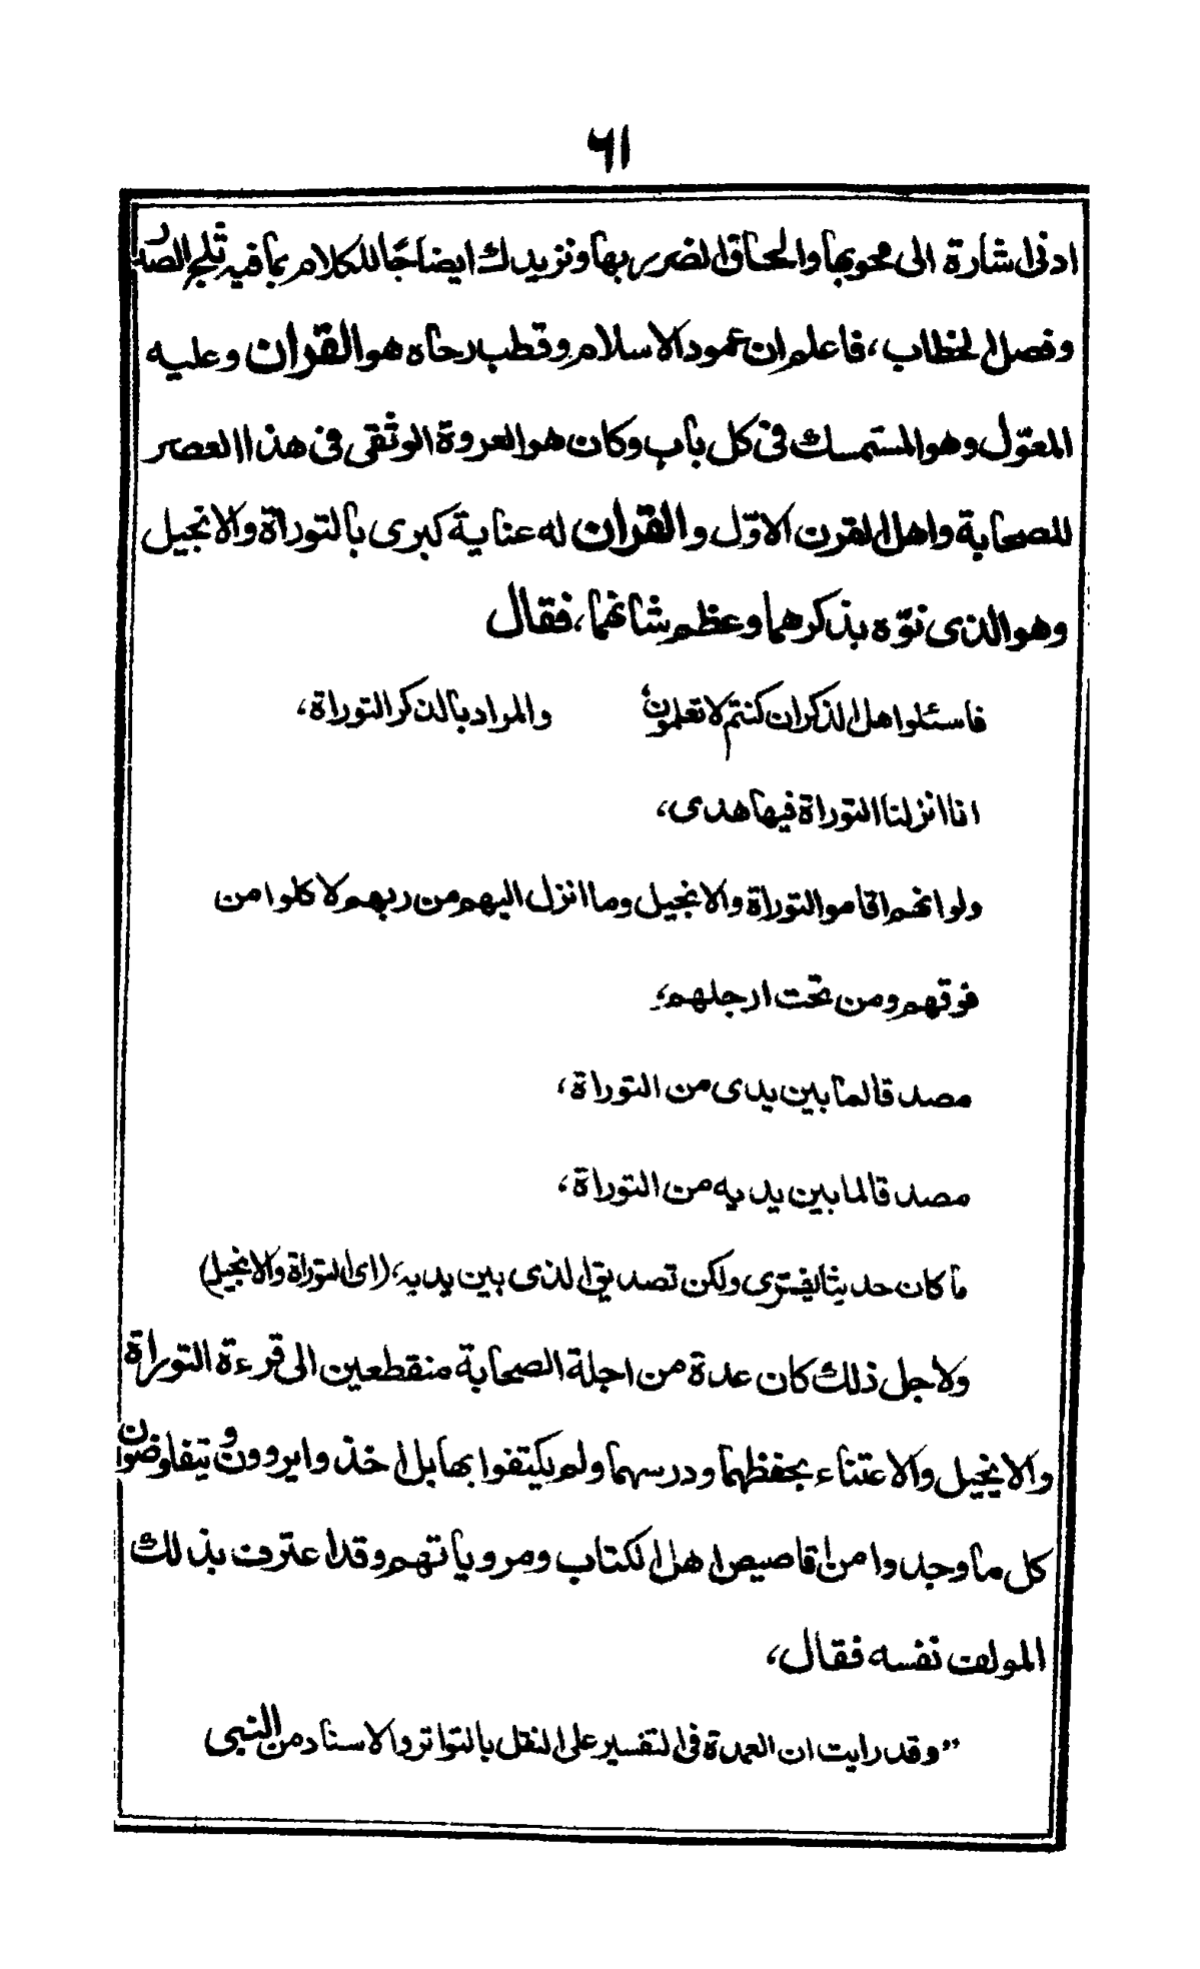 ٦١
ادنى اشارة الى محوبها والحاق الضرر بها ونزيدك ايضاحًا للكلام بما فيه ثلج الصدر
وفصل الخطاب، فاعلم ان عمود الاسلام وقطب رحاه هو القران وعليه
المعوّل وهو المستمسك فى كل باب وكان هو العروة الوثقى فى هذا العصر
للصحابة واهل القرن الاوّل والقران له عناية كبرى بالتوراة والانجيل
وهو الذى نوّه بذكرهما وعظم شانهما، فقال
فاسئلوا هل الذكر ان كنتم لا تعلمون، والمراد بالذكر التوراة،
انا انزلنا التوراة فيها هدى،
ولو انهم اقاموا التوراة والانجيل وما انزل اليهم من ربهم لاكلوا من
فوقهم ومن تحت ارجلهم،
مصدقا لما بين يدى من التوراة،
مصدقا لما بين يديه من التوراة،
ما كان حديثا يفترى ولكن تصديق الذى بين يديه، (اى التوراة والانجيل)
ولاجل ذلك كان عدة من اجلة الصحابة منقطعين الى قرءة التوراة
والانجيل والاعتناء بحفظهما ودرسهما ولم يكتفوا بها بل اخذوا يروون و يتفاوضون
كل ما وجدوا من اقاصيص اهل الكتاب ومروياتهم وقد اعترف بذلك
المولف نفسه فقال،
”وقد رايت ان العمدة فى التفسير على النقل بالتواتر والاسناد من النبى